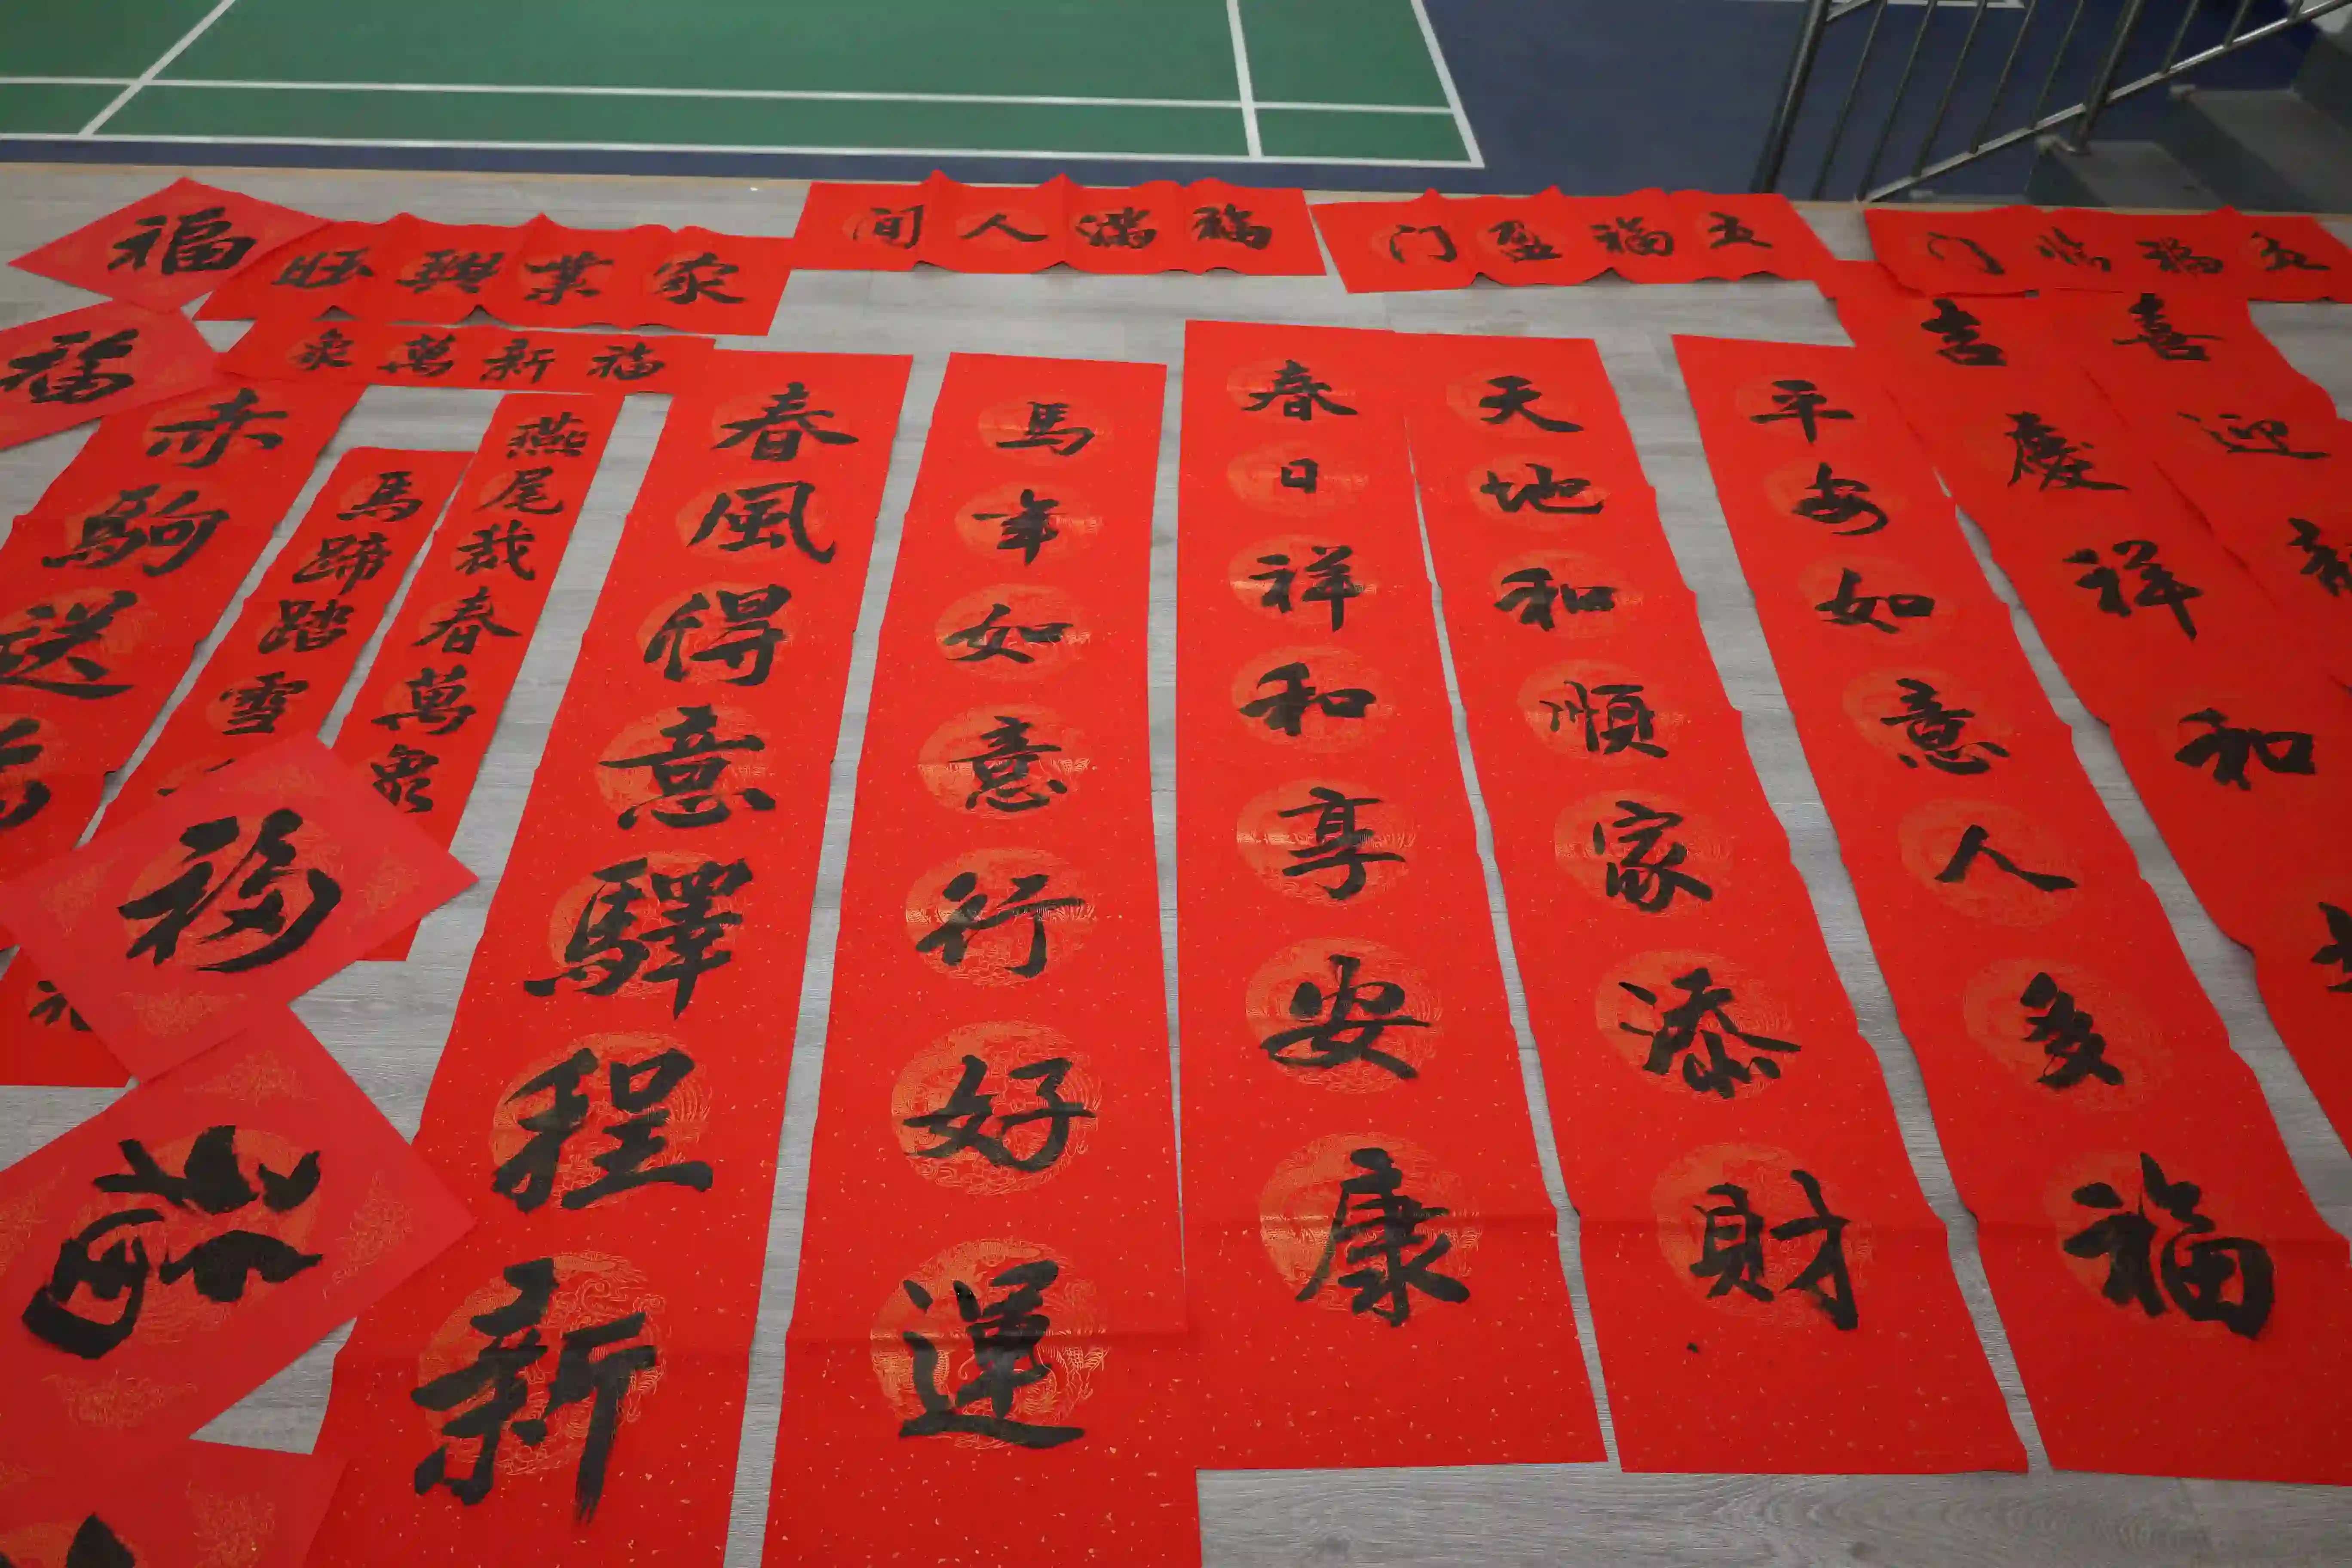 福
旺興業家
间人滿福
门盈福五
门臨福五
福
象萬新福
赤駒送福
馬蹄踏雪
燕尾裁春萬象
春風得意驛程新
馬年如意行好運
春日祥和享安康
天地和順家添財
平安如意人多福
吉慶祥和
喜迎新
福